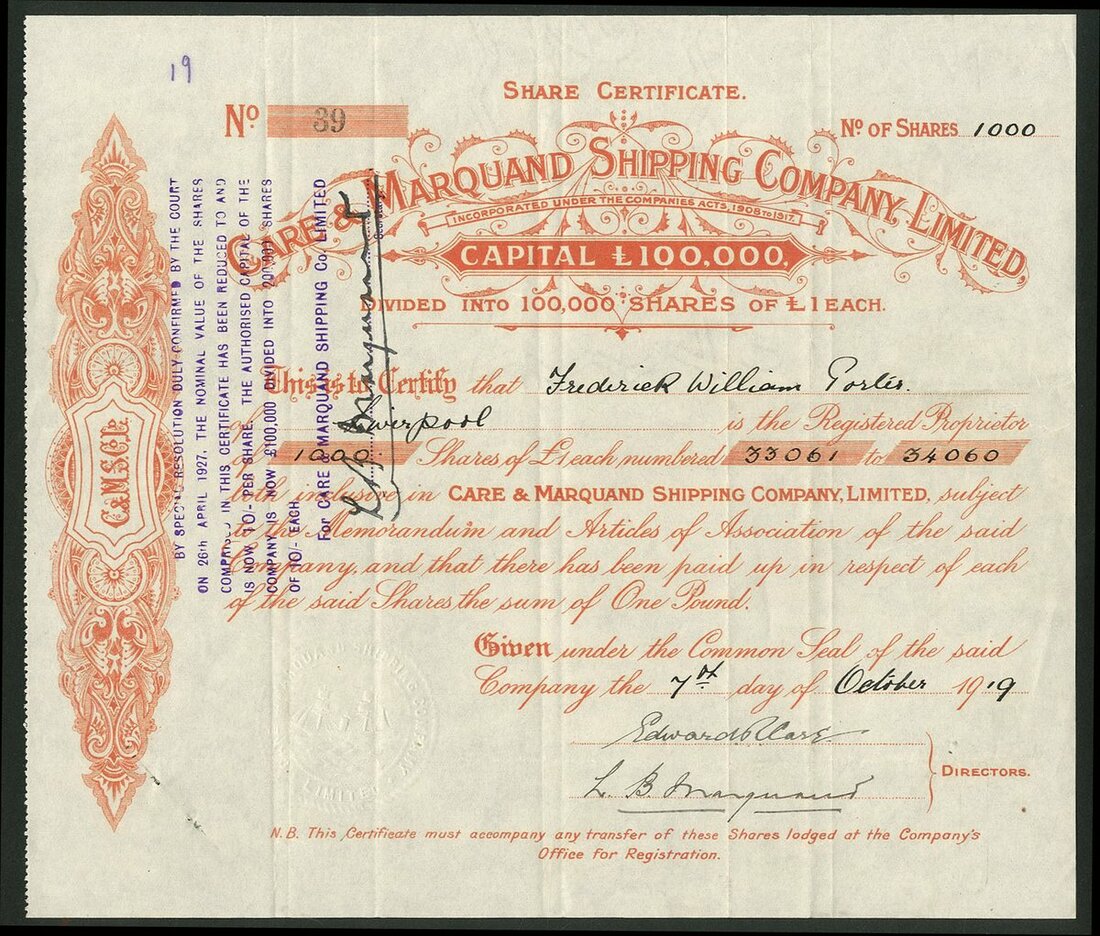 19
SHARE CERTIFICATE.
No. 39
No. OF SHARES 1000
CARE & MARQUAND SHIPPING COMPANY, LIMITED.
INCORPORATED UNDER THE COMPANIES ACTS, 1908 to 1917.
CAPITAL £100,000,
DIVIDED INTO 100,000 SHARES OF £1 EACH.
This is to Certify that Frederick William Porter.
of Liverpool is the Registered Proprietor
of 1000 Shares of £1 each numbered 33061 to 34060
both inclusive in CARE & MARQUAND SHIPPING COMPANY, LIMITED, subject
to the Memorandum and Articles of Association of the said
Company, and that there has been paid up in respect of each
of the said Shares the sum of One Pound.
Given under the Common Seal of the said
Company the 7th day of October 1919
Edward R Care
L. B. Marquand
DIRECTORS.
N.B. This Certificate must accompany any transfer of these Shares lodged at the Company's
Office for Registration.
C & M.S.Co. Ld.
BY SPECIAL RESOLUTION DULY CONFIRMED BY THE COURT
ON 26th APRIL 1927, THE NOMINAL VALUE OF THE SHARES
COMPRISED IN THIS CERTIFICATE HAS BEEN REDUCED TO AND
IS NOW 10/- PER SHARE. THE AUTHORISED CAPITAL OF THE
COMPANY IS NOW £100,000 DIVIDED INTO 200,000 SHARES
OF 10/- EACH
For CARE & MARQUAND SHIPPING Co LIMITED
L B Marquand
MARQUAND SHIPPING COMPANY
LIMITED